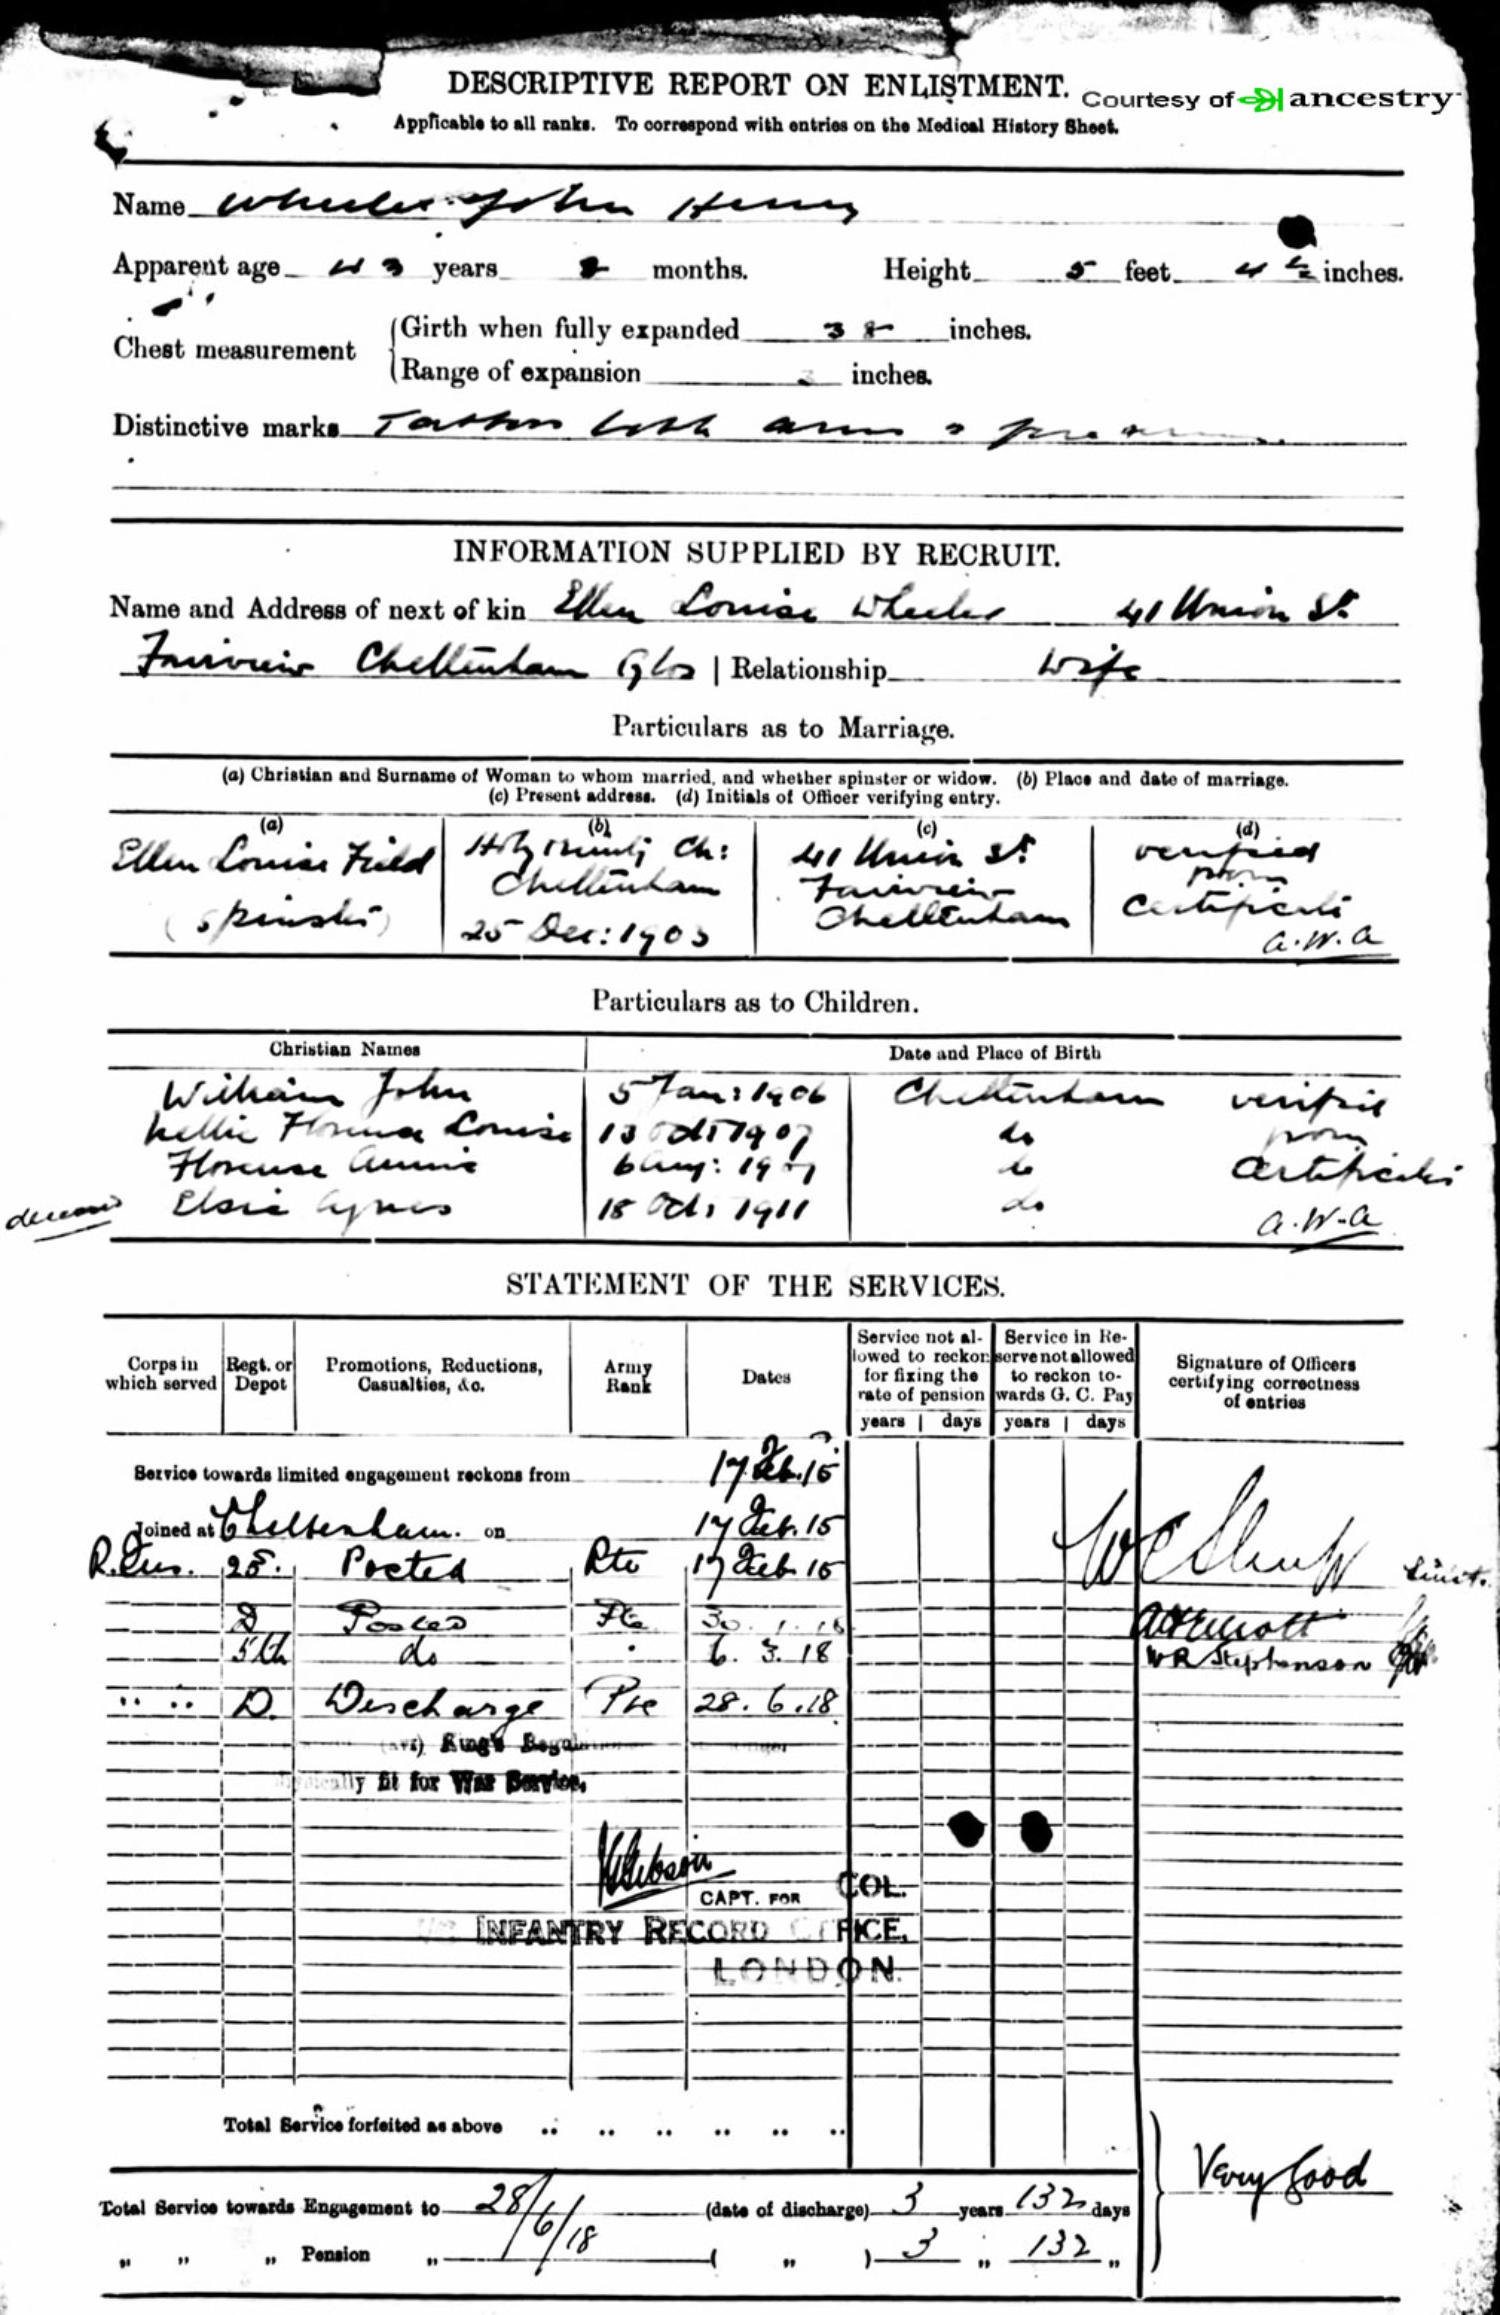 DESCRIPTIVE REPORT ON ENLISTMENT.
Courtesy of ancestry
Applicable to all ranks. To correspond with entries on the Medical History Sheet.
Name Wheeler John Henry
Apparent age 43 years months. Height 5 feet 4 ½ inches.
Chest measurement
Girth when fully expanded 38 inches.
Range of expansion 3 inches.
Distinctive marks Tattoo both arms
INFORMATION SUPPLIED BY RECRUIT.
Name and Address of next of kin Ellen Louise Wheeler 41 Union St
Fairview Cheltenham Glos | Relationship Wife
Particulars as to Marriage.
(a) Christian and Surname of Woman to whom married, and whether spinster or widow. (b) Place and date of marriage.
(c) Present address. (d) Initials of Officer verifying entry.
(a) (b) (c) (d)
Ellen Louise Field Holy Trinity Ch: 41 Union St verified
Cheltenham Fairview from
(Spinster) 25 Dec: 1905 Cheltenham Certificate
A.W.A
Particulars as to Children.
Christian Names Date and Place of Birth
William John 5 Jan: 1906 Cheltenham verified
Nellie Florence Louise 13 Oct 1907 do from
Florence Annie 6 Aug: 19 do Certificates
deceased Elsie Agnes 18 Oct: 1911 do A.W.A
STATEMENT OF THE SERVICES.
Corps in which served
Regt. or Depot
Promotions, Reductions, Casualties, &c.
Army Rank
Dates
Service not allowed to reckon for fixing the rate of pension
Service in Reserve not allowed to reckon towards G. C. Pay
Signature of Officers certifying correctness of entries
years days years days
Service towards limited engagement reckons from 17 Feb. 15
Joined at Cheltenham. on 17 Feb. 15
R. Fus. 25. Posted Pte 17 Feb. 15 Lieut.
D Posted Pte 30. 1. 18 Elliott
5th do 6. 3. 18 W R Stephenson
" " D. Discharge Pte 28. 6. 18
King's Regulations
physically fit for War Service.
Gibson
CAPT. FOR COL.
INFANTRY RECORD OFFICE,
LONDON.
Total Service forfeited as above .. .. .. .. .. ..
Very Good
Total Service towards Engagement to 28/6/18 (date of discharge) 3 years 132 days
" " " Pension " ( " ) 3 " 132 "